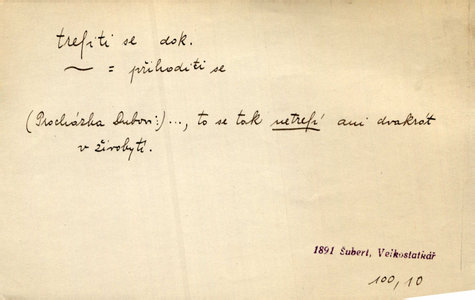 trefiti se dok.
~ = přihoditi se
(Procházka Dubon:) ..., to se tak netrefí ani dvakrát
v živobytí.
1891 Šubert, Velkostatkář
100, 10